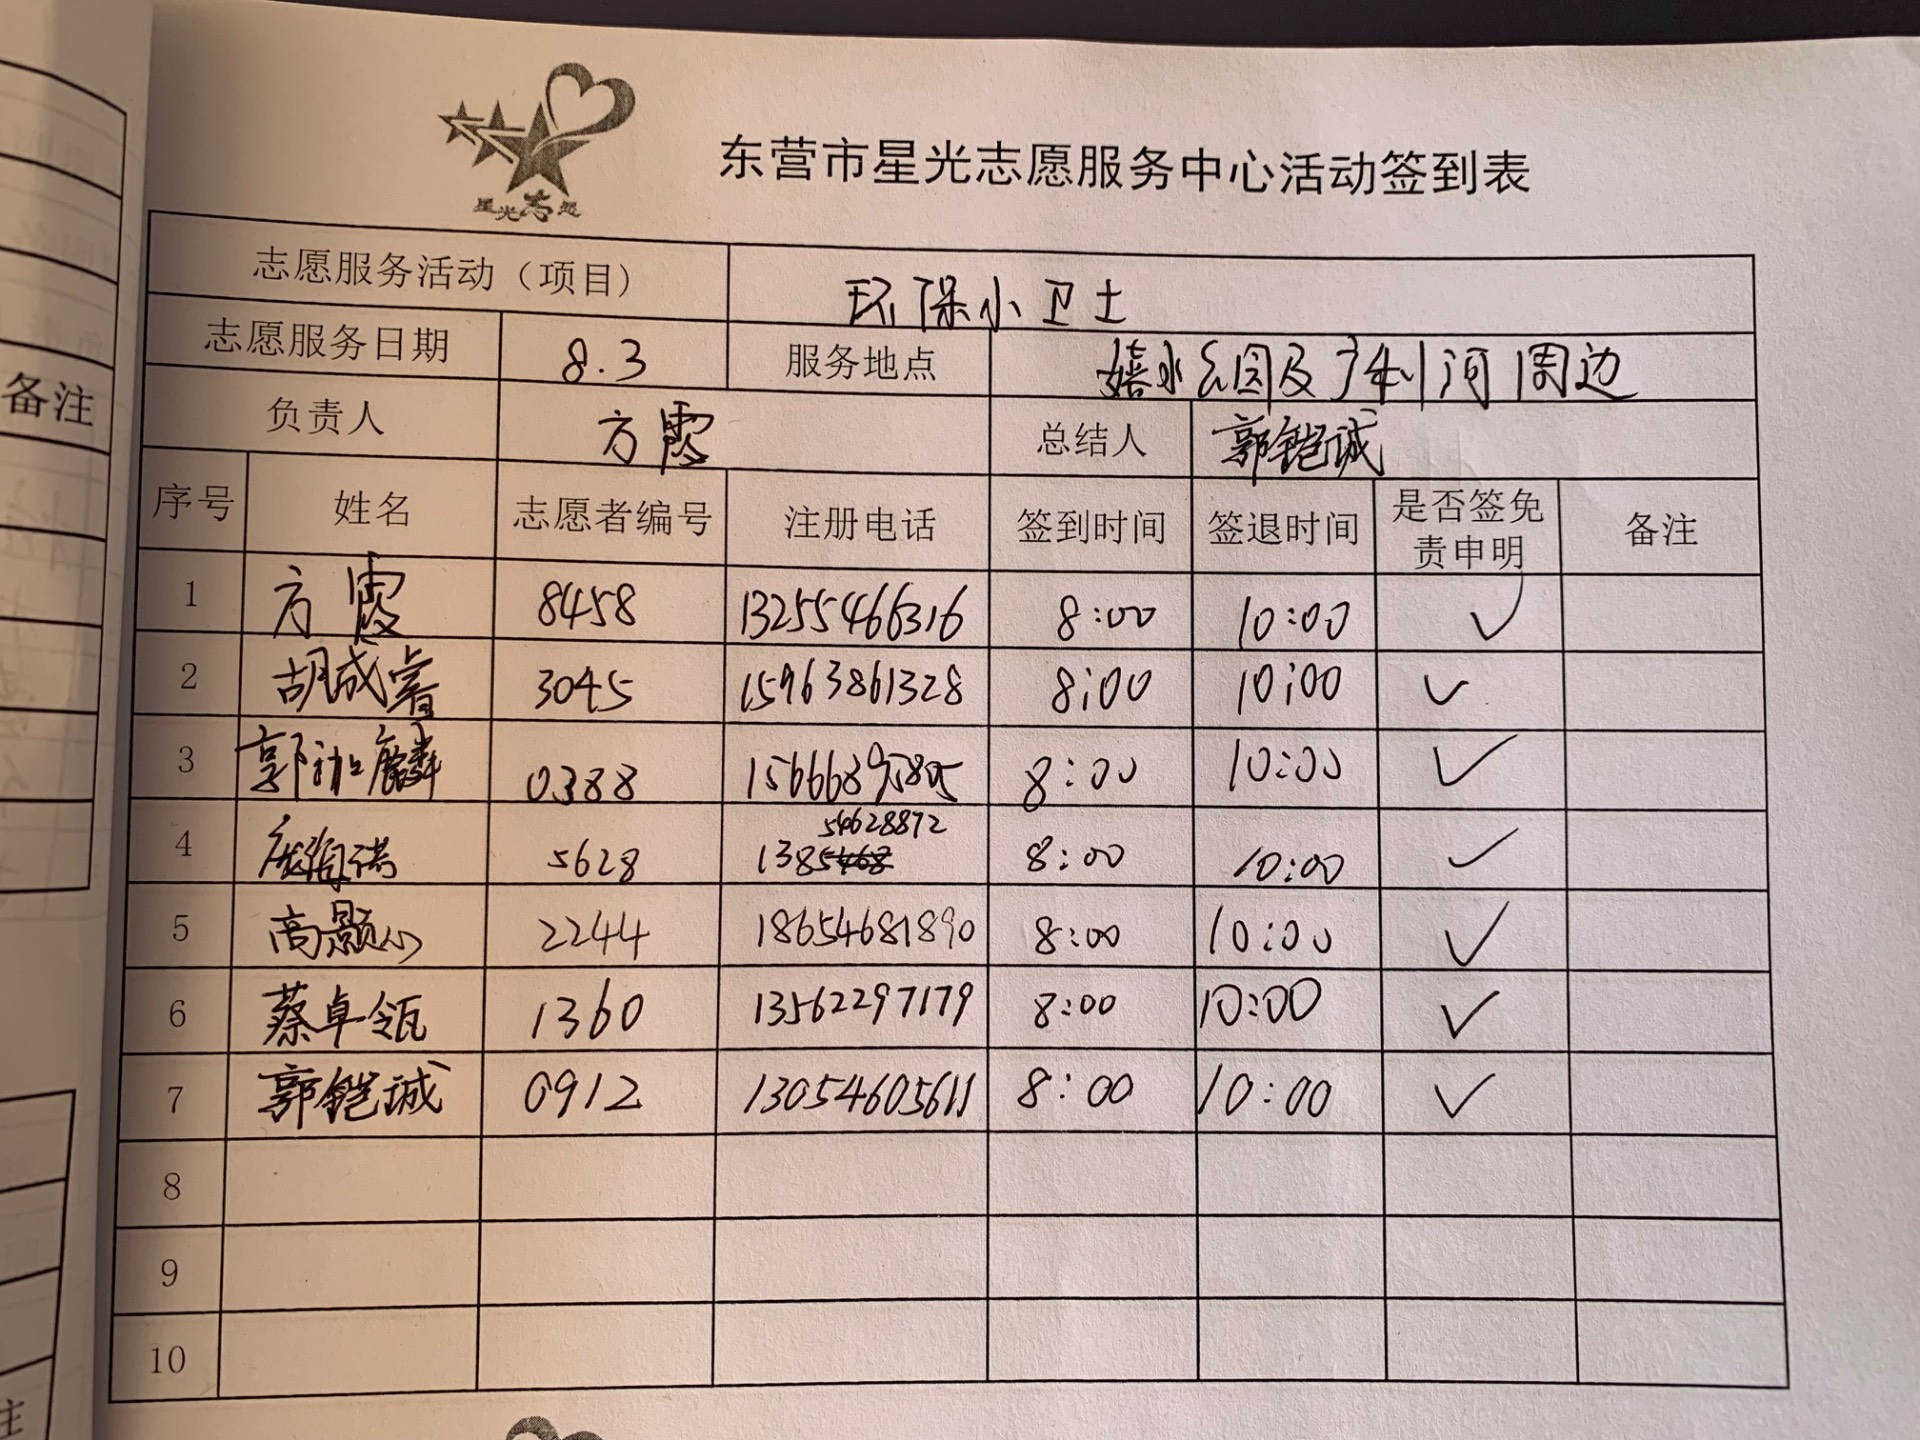 星光志愿
东营市星光志愿服务中心活动签到表
志愿服务活动（项目） 环保小卫士
志愿服务日期 8.3 服务地点 嬉水公园及广利河周边
负责人 方霞 总结人 郭铠诚
序号 姓名 志愿者编号 注册电话 签到时间 签退时间 是否签免责申明 备注
1 方霞 8458 13255466316 8:00 10:00 ✓
2 胡成睿 3045 15963861328 8:00 10:00 ✓
3 郭祉麟 0388 15666895805 8:00 10:00 ✓
4 5628 138 54628872 8:00 10:00 ✓
5 高颢心 2244 18654681890 8:00 10:00 ✓
6 蔡卓瓴 1360 13562297179 8:00 10:00 ✓
7 郭铠诚 0912 13054605611 8:00 10:00 ✓
8
9
10
备注
注